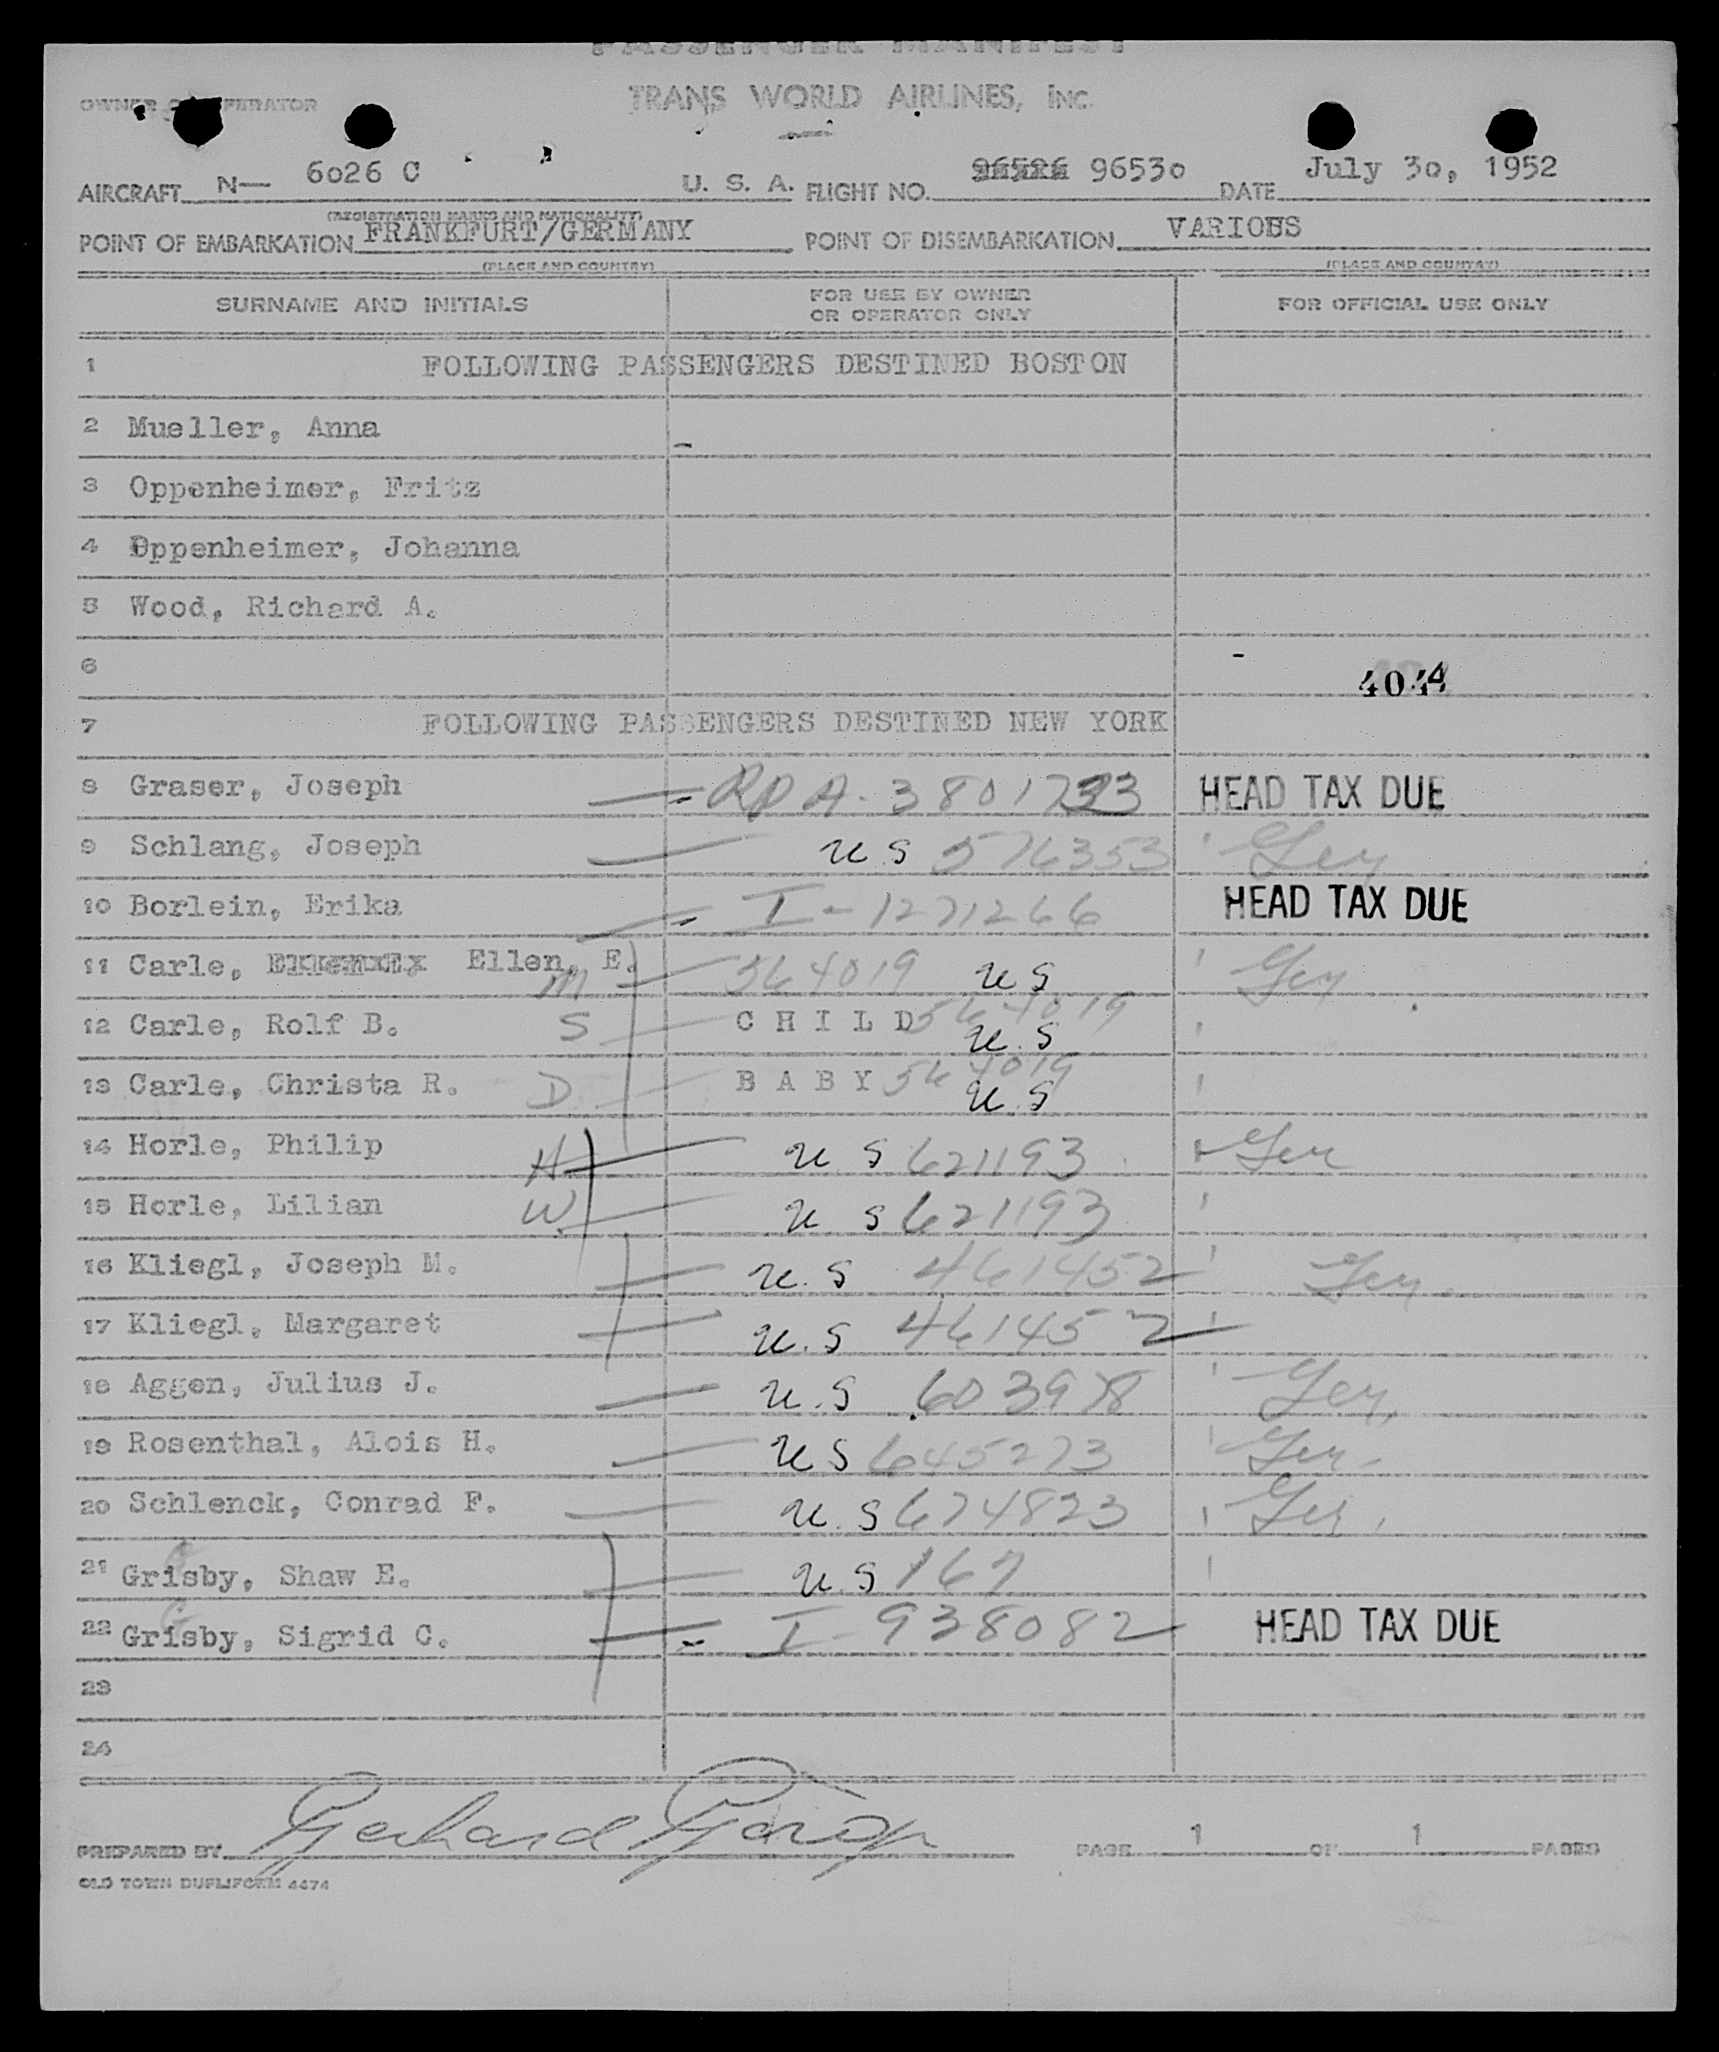 PASSENGER MANIFEST
OWNER OR OPERATOR TRANS WORLD AIRLINES, INC.
AIRCRAFT N— 6026 C U. S. A. FLIGHT NO. 96530 DATE July 30, 1952
(REGISTRATION MARKS AND NATIONALITY)
POINT OF EMBARKATION FRANKFURT/GERMANY POINT OF DISEMBARKATION VARIOUS
(PLACE AND COUNTRY) (PLACE AND COUNTRY)
SURNAME AND INITIALS FOR USE BY OWNER OR OPERATOR ONLY FOR OFFICIAL USE ONLY
1 FOLLOWING PASSENGERS DESTINED BOSTON
2 Mueller, Anna
3 Oppenheimer, Fritz
4 Oppenheimer, Johanna
5 Wood, Richard A.
6 4044
7 FOLLOWING PASSENGERS DESTINED NEW YORK
8 Graser, Joseph HEAD TAX DUE
9 Schlang, Joseph U S 576353 Ger
10 Borlein, Erika I-1271266 HEAD TAX DUE
11 Carle, Ellen, E. M 564019 U S Ger
12 Carle, Rolf B. S C H I L D 564019 U.S
13 Carle, Christa R. D B A B Y 564019 U.S
14 Horle, Philip H U S 621193 Ger
15 Horle, Lilian W. U S 621193
16 Kliegl, Joseph M. U.S 461452 Ger.
17 Kliegl, Margaret U.S 461452
18 Aggen, Julius J. U.S 603978 Ger.
19 Rosenthal, Alois H. U S 645273 Ger.
20 Schlenck, Conrad F. U.S 674823 Ger.
21 Grisby, Shaw E. U.S 167
22 Grisby, Sigrid C. I-938082 HEAD TAX DUE
23
24
PREPARED BY Gerhard PAGE 1 OF 1 PAGES
OLD TOWN DUPLIFORM 4474